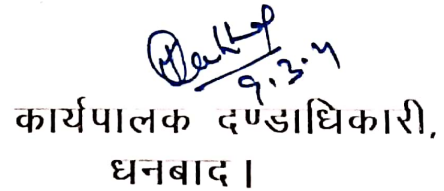 9.3.4
कार्यपालक दण्डाधिकारी,
धनबाद।